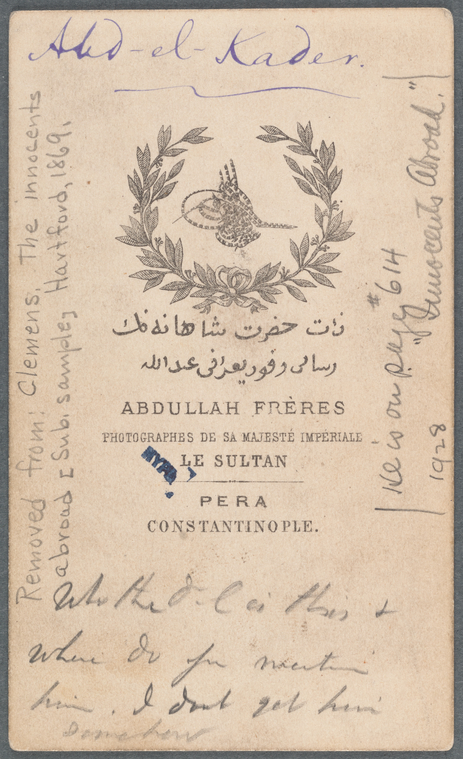 Abd-el-Kader.
Removed from: Clemens. The innocents
abroad [Sub. sample] Hartford, 1869.
ذات حضرت شاهانه نك
رسامى وفوتوغرافى عبدالله
ABDULLAH FRÈRES
PHOTOGRAPHES DE SA MAJESTÉ IMPÉRIALE
LE SULTAN
PERA
CONSTANTINOPLE.
He is on page #614
"Innocents Abroad."
1928
Who the d-l is this &
where do you mention
him. I don't get him
somehow